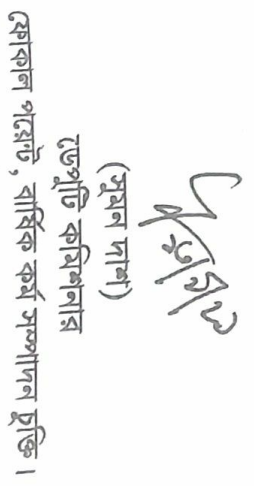 (সুমন দাশ)
ডেপুটি কমিশনার
ফোকাল পয়েন্ট, বার্ষিক কর্ম সম্পাদন চুক্তি।